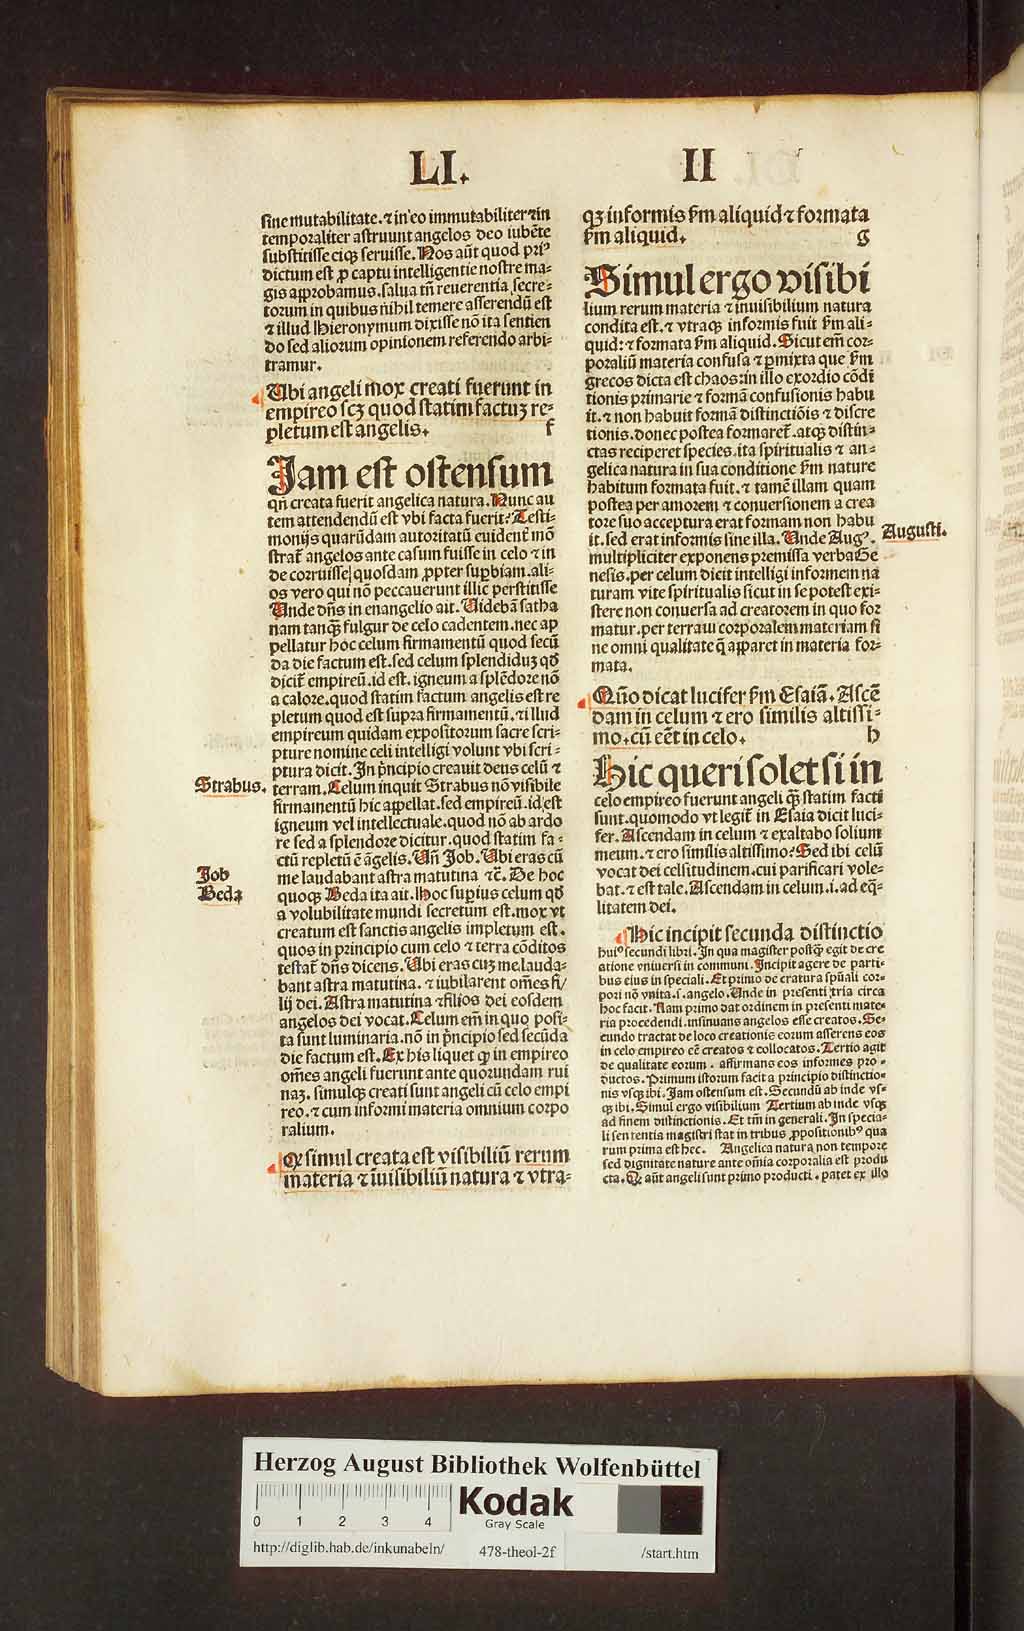 LI. II
sine mutabilitate. ⁊ in eo immutabiliter ⁊ in
temporaliter astruunt angelos deo iubēte
substitisse eiqꝫ seruisse. Nos aūt quod priꝰ
dictum est ꝓ captu intelligentie nostre ma-
gis approbamus. salua tn̄ reuerentia secre-
torum in quibus nihil temere asserendū est
⁊ illud Hieronymum dixisse nō ita sentien
do sed aliorum opinionem referendo arbi-
tramur.
Ubi angeli mox creati fuerunt in
empireo scꝫ quod statim factuꝫ re-
pletum est angelis. f
Jam est ostensum
qn̄ creata fuerit angelica natura. Nunc au
tem attendendū est vbi facta fuerit? Testi-
monijs quarūdam autoritatū euident̄ mō
strat̄ angelos ante casum fuisse in celo ⁊ in
de corruisse quosdam ꝓpter suꝑbiam. ali-
os vero qui nō peccauerunt illic perstitisse
Unde dn̄s in enangelio ait. Uidebā satha
nam tanqꝫ fulgur de celo cadentem. nec ap
pellatur hoc celum firmamentū quod secū
da die factum est. sed celum splendiduꝫ qd̄
dicit̄ empireū. id est. igneum a splēdore nō
a calore. quod statim factum angelis est re
pletum quod est supra firmamentū. ⁊ illud
empireum quidam expositorum sacre scri-
pture nomine celi intelligi volunt vbi scri-
ptura dicit. In prīncipio creauit deus celū ⁊
Strabus. terram. Celum inquit Strabus nō visibile
firmamentū hic appellat. sed empireū. id est
igneum vel intellectuale. quod nō ab ardo
re sed a splendore dicitur. quod statim fa-
ctū repletū ē āgelis. Un̄ Job. Ubi eras cū
Job me laudabant astra matutina ⁊c̄. De hoc
Beda quoqꝫ Beda ita ait. Hoc suꝑius celum qd̄
a volubilitate mundi secretum est. mox vt
creatum est sanctis angelis impletum est.
quos in principio cum celo ⁊ terra cōditos
testat̄ dn̄s dicens. Ubi eras cuꝫ me lauda-
bant astra matutina. ⁊ iubilarent om̄es fi/
lij dei. Astra matutina ⁊ filios dei eosdem
angelos dei vocat. Celum em̄ in quo posi-
ta sunt luminaria. nō in prīncipio sed secūda
die factum est. Ex his liquet ꝙ in empireo
om̄es angeli fuerunt ante quorundam rui
naꝫ. simulqꝫ creati sunt angeli cū celo empi
reo. ⁊ cum informi materia omnium corpo
ralium.
Qꝫ simul creata est visibiliū rerum
materia ⁊ īuisibiliū natura ⁊ vtra-
qꝫ informis ẜm aliquid ⁊ formata
ẜm aliquid. g
Simul ergo visibi
lium rerum materia ⁊ inuisibilium natura
condita est. ⁊ vtraqꝫ informis fuit ẜm ali-
quid: ⁊ formata ẜm aliquid. Sicut em̄ cor-
poraliū materia confusa ⁊ ꝑmixta que ẜm
grecos dicta est chaos: in illo exordio cōdi
tionis primarie ⁊ formā confusionis habu
it. ⁊ non habuit formā distinctiōis ⁊ discre
tionis. donec postea formaret̄. atqꝫ distin-
ctas reciperet species. ita spiritualis ⁊ an-
gelica natura in sua conditione ẜm nature
habitum formata fuit. ⁊ tamē illam quam
postea per amorem ⁊ conuersionem a crea
tore suo acceptura erat formam non habu
it. sed erat informis sine illa. Unde Augꝰ. Augusti.
multipliciter exponens premissa verba Ge
nesis. per celum dicit intelligi informem na
turam vite spiritualis sicut in se potest exi-
stere non conuersa ad creatorem in quo for
matur. per terram corporalem materiam si
ne omni qualitate q̄ apparet in materia for-
mata.
Qūo dicat lucifer ẜm Esaiā. Ascē
dam in celum ⁊ ero similis altissi-
mo. cū eēt in celo. h
Hic queri solet si in
celo empireo fuerunt angeli qꝫ statim facti
sunt. quomodo vt legit̄ in Esaia dicit luci-
fer. Ascendam in celum ⁊ exaltabo solium
meum. ⁊ ero similis altissimo? Sed ibi celū
vocat dei celsitudinem. cui parificari vole-
bat. ⁊ est tale. Ascendam in celum. i. ad eq̄-
litatem dei.
Hic incipit secunda distinctio
huiꝰ secundi libri. In qua magister postqꝫ egit de cre
atione vniuersi in communi. Incipit agere de parti-
bus eius in speciali. Et primo de cratura spūali cor-
pori nō vnita. s. angelo. Unde in presenti tria circa
hoc facit. Nam primo dat ordinem in presenti mate-
ria procedendi. insinuans angelos esse creatos. Se-
cundo tractat de loco creationis eorum asserens eos
in celo empireo eē creatos ⁊ collocatos. Tertio agit
de qualitate eorum. affirmans eos informes pro-
ductos. Primum istorum facit a principio distinctio-
nis vsqꝫ ibi. Jam ostensum est. Secundū ab inde vs-
qꝫ ibi. Simul ergo visibilium Tertium ab inde vsqꝫ
ad finem distinctionis. Et tm̄ in generali. In specia-
li sententia magistri stat in tribus ꝓpositionibꝰ qua
rum prima est hec. Angelica natura non tempore
sed dignitate nature ante om̄ia corporalia est produ
cta. Qꝫ aūt angeli sunt primo producti. patet ex illo
Herzog August Bibliothek Wolfenbüttel
0 1 2 3 4 Kodak
Gray Scale
http://diglib.hab.de/inkunabeln/ 478-theol-2f /start.htm